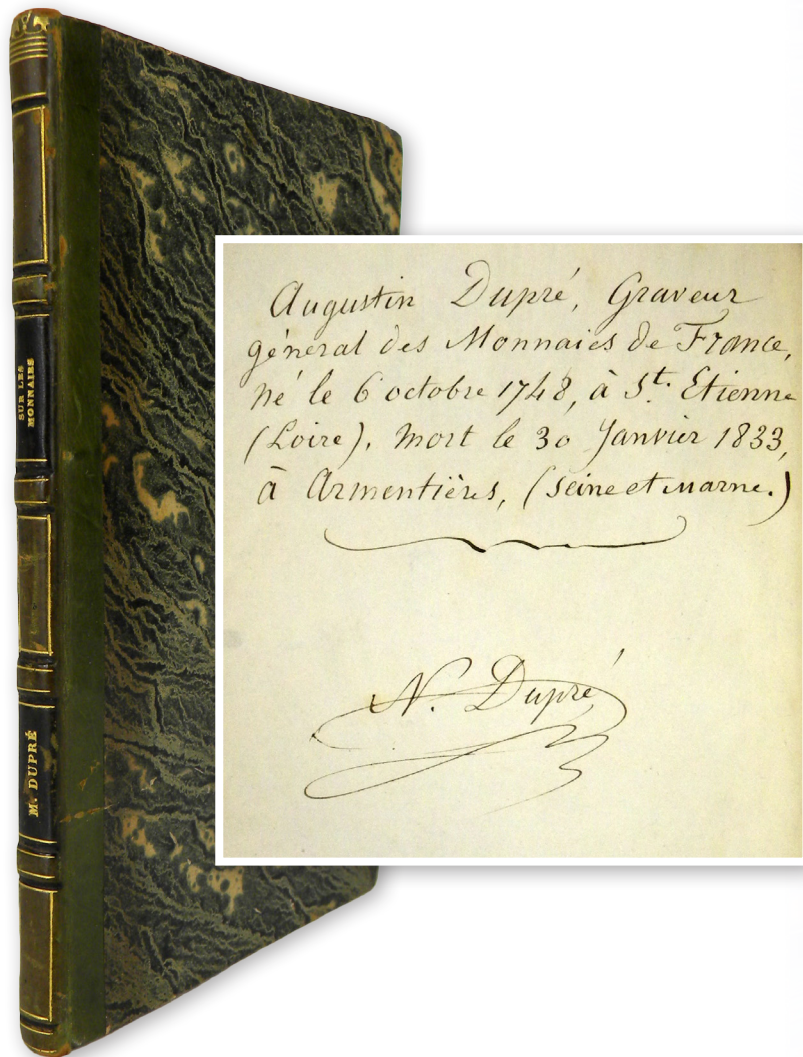 SUR LES
MONNAIES
M. DUPRÉ
Augustin Dupré, Graveur
général des Monnaies de France,
né le 6 octobre 1748, à St. Etienne
(Loire), mort le 30 Janvier 1833,
à Armentières, (Seine et marne.)
N. Dupré